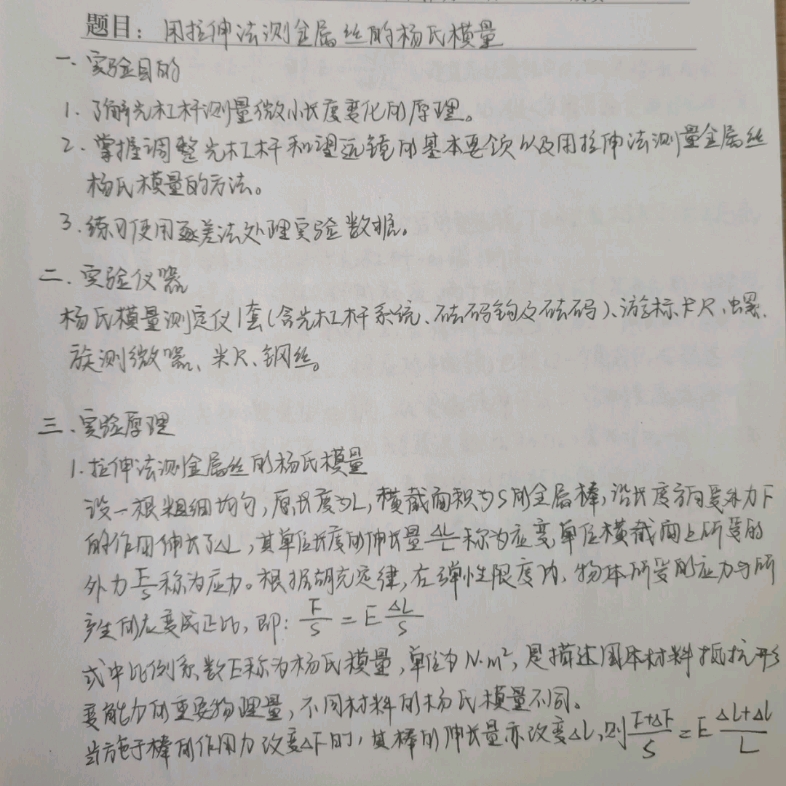 题目：用拉伸法测金属丝的杨氏模量
一、实验目的
1. 了解光杠杆测量微小长度变化的原理。
2. 掌握调整光杠杆和望远镜的基本要领以及用拉伸法测量金属丝
杨氏模量的方法。
3. 练习使用逐差法处理实验数据。
二、实验仪器
杨氏模量测定仪1套(含光杠杆系统、砝码钩及砝码)、游标卡尺、螺
旋测微器、米尺、钢丝。
三、实验原理
1. 拉伸法测金属丝的杨氏模量
设一根粗细均匀，原长度为L，横截面积为S的金属棒，沿长度方向受外力F
的作用伸长了△L，其单位长度的伸长量△L/L称为应变，单位横截面上所受的
外力F/S称为应力。根据胡克定律，在弹性限度内，物体所受的应力与所
产生的应变成正比，即：F/S = E △L/S
式中比例系数E称为杨氏模量，单位为N·m²，是描述固体材料抵抗形
变能力的重要物理量，不同材料的杨氏模量不同。
当施于棒的作用力改变△F时，其棒的伸长量亦改变△L，则 F+△F/S = E △L+△L/L